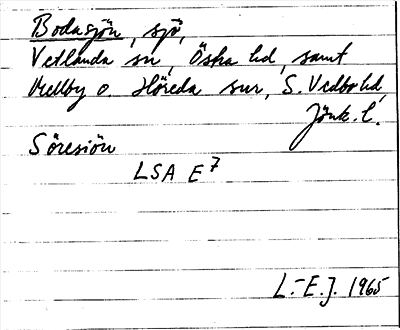 Bodasjön, sjö,
Vetlanda sn, Östra hd, samt
Mellby o Höreda snr, S. Vedbo hd,
Jönk. l.
Söresiön
LSA E7
L.-E.J. 1965